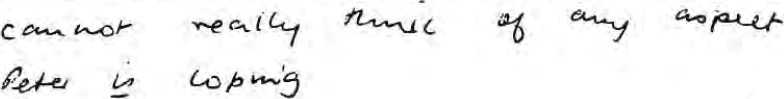 cannot really think of any aspect
Peter is coping